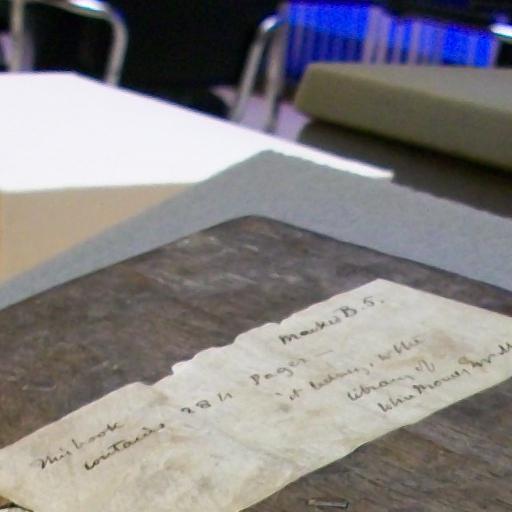 Marked B.5.
This book
contains 284 Pages —
it belongs to the
library of
John Thomas